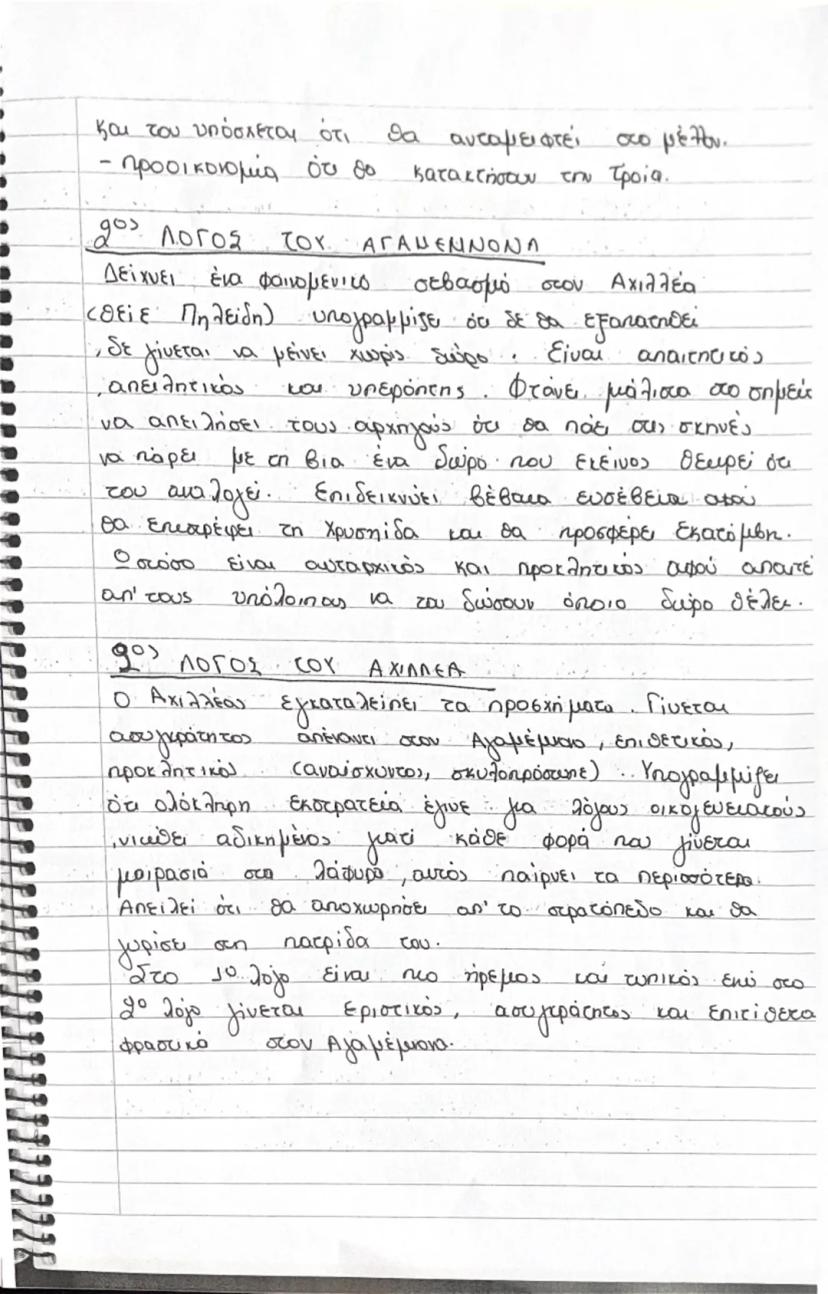 και του υπόσχεται ότι θα ανταμειφτεί στο μέλλον.
- προοικονομία, ότι θα κατακτήσουν την Τροία.
2ος ΛΟΓΟΣ ΤΟΥ ΑΓΑΜΕΝΝΟΝΑ
Δείχνει ένα φαινομενικό σεβασμό στον Αχιλλέα
(θεϊέ Πηλείδη) υπογραμμίζει ότι δε θα εξαπατηθεί
, δε γίνεται να μείνει χωρίς δώρο. Είναι απαιτητικός
, απειλητικός και υπερόπτης. Φτάνει μάλιστα στο σημείο
να απειλήσει τους αρχηγούς ότι θα πάει στις σκηνές
να πάρει με τη βια ένα δώρο που εκείνος θεωρεί ότι
του αναλογεί. Επιδεικνύει βέβαια ευσέβεια αφού
θα επιστρέψει τη Χρυσηίδα και θα προσφέρει εκατόμβη.
Ωστόσο είναι αυταρχικός και προκλητικός αφού απαιτεί
απ' τους υπόλοιπους να του δώσουν όποιο δώρο θέλει.
2ος ΛΟΓΟΣ ΤΟΥ ΑΧΙΛΛΕΑ
Ο Αχιλλέας εγκαταλείπει τα προσχήματα. Γίνεται
ασυγκράτητος απέναντι στον Αγαμέμνονα, επιθετικός,
προκλητικός (αναίσχυντος, σκυλοπρόσωπε). Υπογραμμίζει
ότι ολόκληρη εκστρατεία έγινε για λόγους οικογενειακούς
, νιώθει αδικημένος γιατί κάθε φορά που γίνεται
μοιρασιά στα λάφυρα, αυτός παίρνει τα περισσότερα.
Απειλεί ότι θα αποχωρήσει απ' το στρατόπεδο και θα
γυρίσει στη πατρίδα του.
Στο 1ο λόγο είναι πιο ήρεμος και τυπικός ενώ στο
2ο λόγο γίνεται εριστικός, ασυγκράτητος και επιτίθεται
φραστικά στον Αγαμέμνονα.